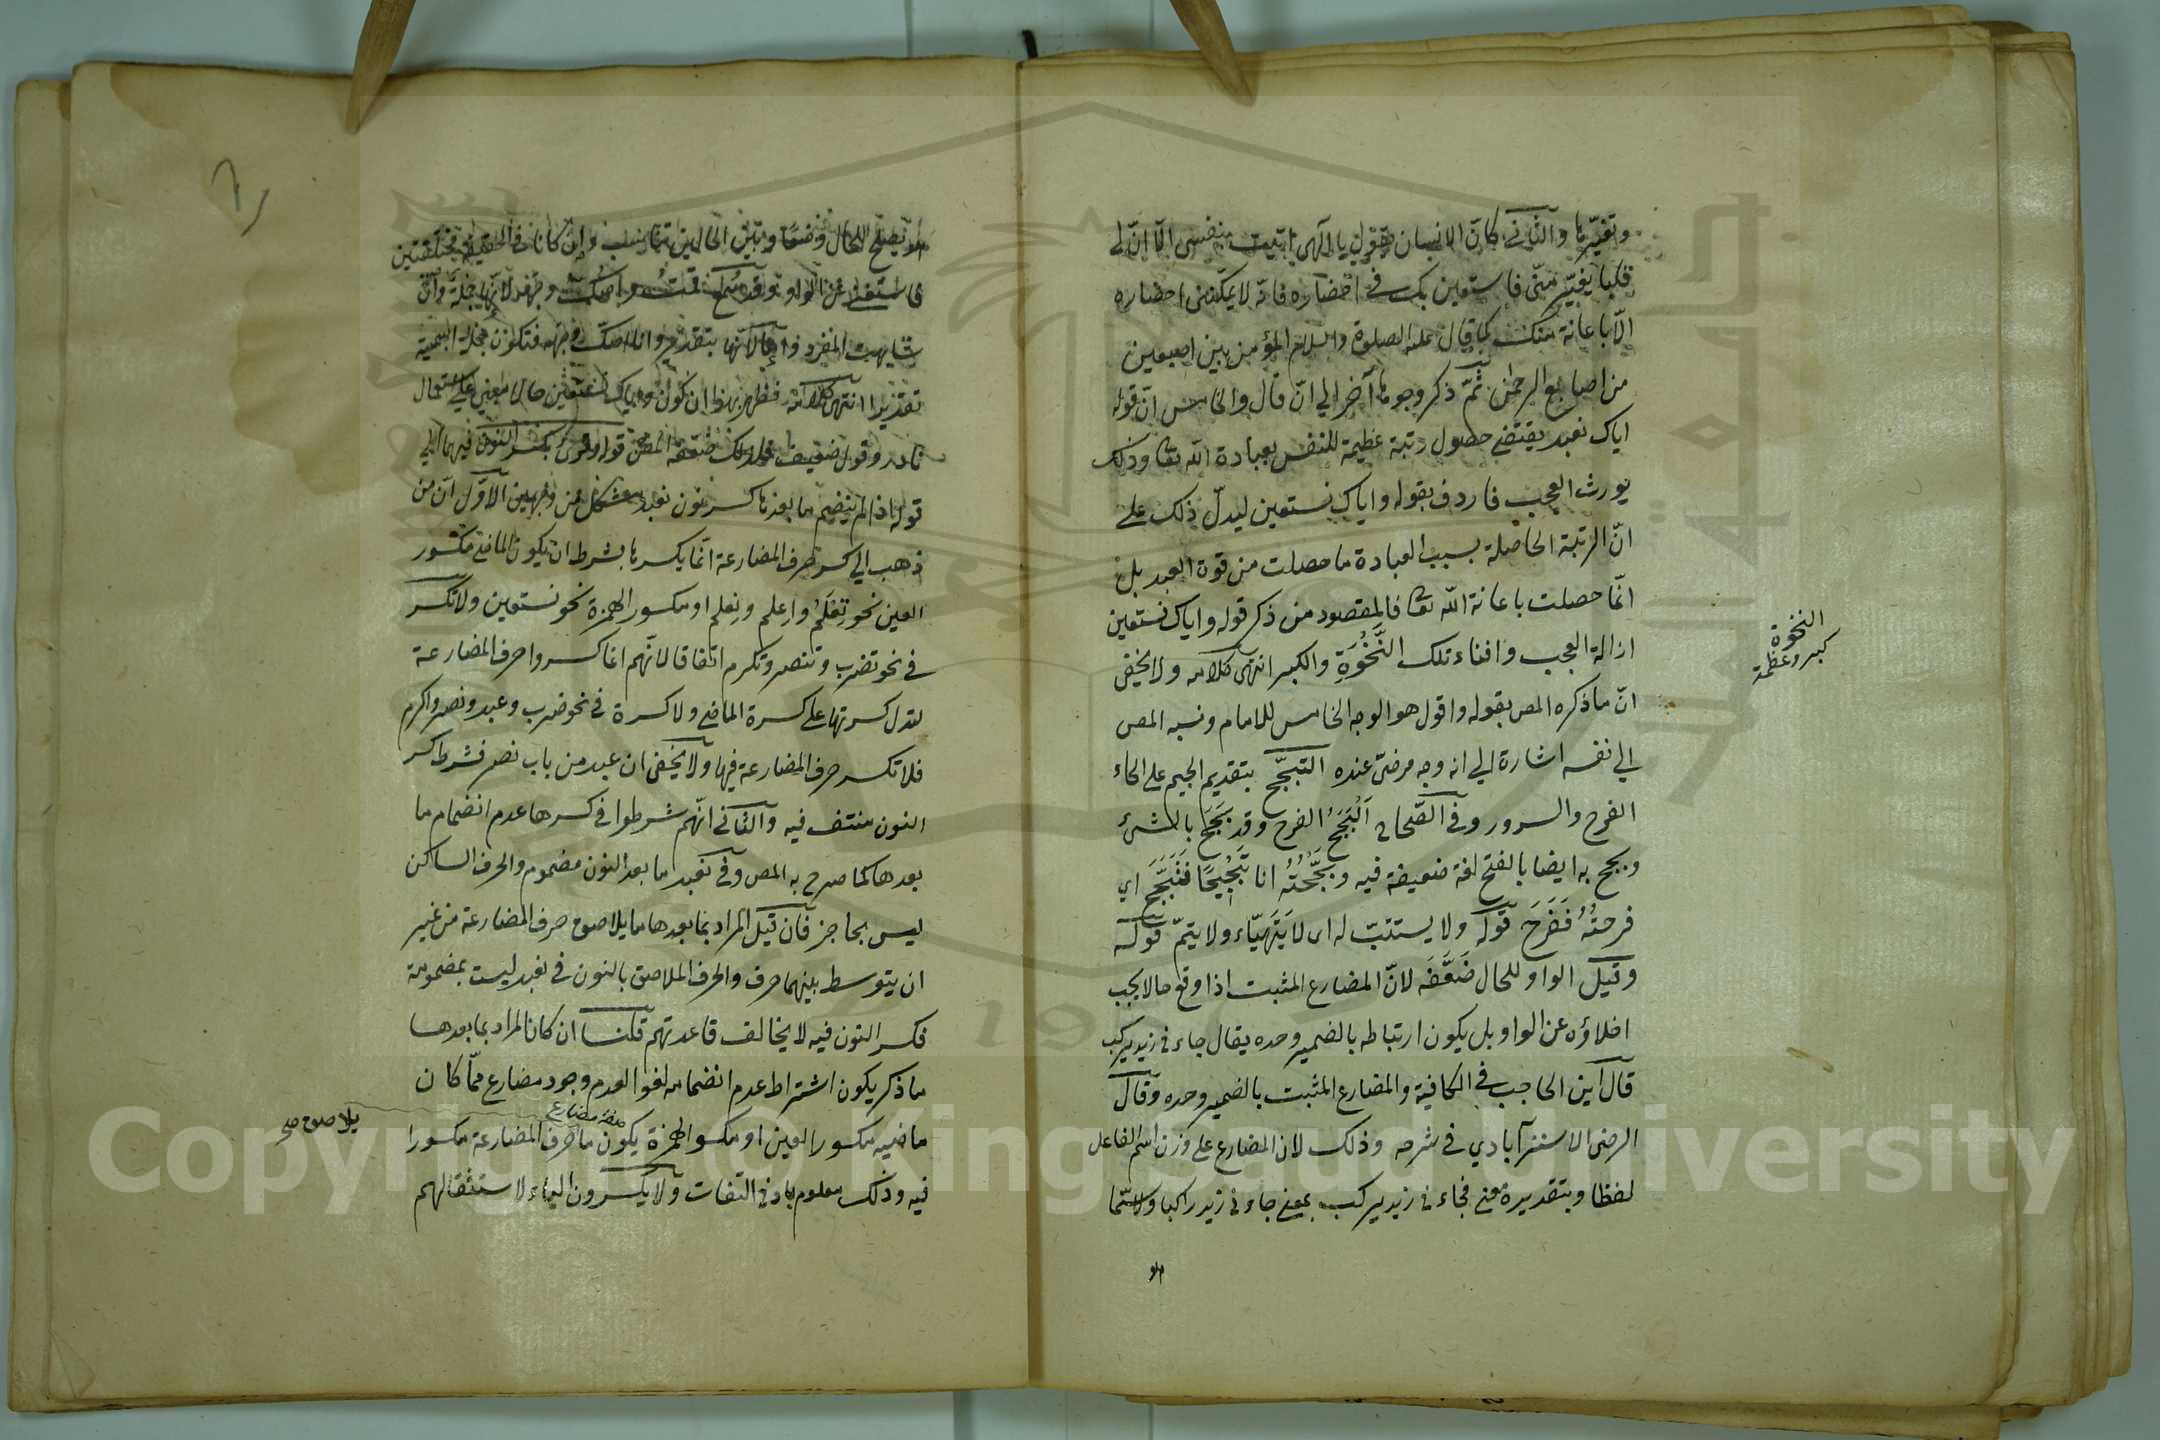 وتغيّرها والثاني كانّ الانسان يقول يا الهي اتيت بنفسي الّا انّ لي
قلبا يغيّر منّى فاستعين بك في احضاره فانه لا يمكننى احضاره
الّا باعانة منك كما قال عليه الصلوة والسلام المؤمن بين اصبعين
من اصابع الرحمن ثمّ ذكر وجوها آخر الي انّ قال والخامس انّ قوله
اياك نعبد يقتضي حصول رتبة عظيمة للنفس بعبادة اللّه تعا وذلك
يورث العجب فاردف بقوله واياك نستعين ليدلّ ذلك علي
انّ الرتبة الحاصلة بسبب العبادة ما حصلت من قوة العبد بل
انّما حصلت باعانة اللّه تعا فالمقصود من ذكر قوله واياك نستعين
ازالة العجب وافناء تلك النَّخْوَةِ والكبر انتهى كلامه ولا يخفى
انّ ما ذكره المص بقوله واقول هو الوجه الخامس للامام ونسبه المص
الي نفسه اشارة الي انه وجه مرضىّ عنده التبجّح بتقديم الجيم على الحاء
الفرح والسرور وفي الصّحاح اَلْبَجَحُ الفرح وقد بَجَحَ بالشئ
وبجح به ايضا بالفتح لغة ضعيفة فيه وبَجَّحْتُهُ انا تَبْجِيْحًا فَتَبَجَّحَ اي
فرحتُهُ فَفَرِحَ قوله ولا يستتبّ له اى لا يَتَهَيّاء ولا يتمّ قوله
وقيل الواو للحال ضَعَّفَه لانّ المضارع المثبت اذا وقع حالا يجب
اخلاؤه عن الواو بل يكون ارتباطه بالضمير وحده يقال جاءنى زيد يركب
قال ابن الحاجب في الكافية والمضارع المثبت بالضمير وحده وقال
الرضى الاسترآبادي في شرحه وذلك لان المضارع على وزن اسم الفاعل
لفظا وبتقديره معنى فجاءنى زيد يركب بمعنى جاءنى زيد راكبا ولا سيّما
النخوة
كبر وعظمة
يصلح للحال وضعًا وبين الحالين تناسب وان كانا في الحقيقة مختلفتين
فاستغنى عن الواو وقد سُمع قمتُ واصكّ وجهه لانّها جملة وان
شابهت المفرد واما لانّها بتقدير وانا اصكّ وجهه فتكون جملة اسمية
تقديرا انتهى كلامه فظهر بهذا ان كون واياك نستعين حالا مبني علي استعمال
نادر وقول ضعيف فلذلك ضعّفه المص قوله وقرئ بكسر النون فيهما الي
قوله اذا لم ينضم ما بعدها كسر نون نعبد مشكل من وجهين الاوّل انّ من
ذهب الي كسر حرف المضارعة انّما يكسرها بشرط ان يكون الماضى مكسور
العين نحو تِعْلَمُ واعلم ونعلم او مكسور الهمزة نحو نستعين ولا تكسر
في نحو تضرب وتنصر وتكرم اتفاقا لانّهم انما كسروا حرف المضارعة
لتدل كسرتها على كسرة الماضى ولا كسرة في نحو ضرب وعبد ونصر واكرم
فلا تكسر حرف المضارعة فيها ولا يخفى ان عبد من باب نصر فشرط كسر
النون منتف فيه والثاني انّهم شرطوا في كسرها عدم انضمام ما
بعدها كما صرح به المص وفي نعبد ما بعد النون مضموم والحرف الساكن
ليس بحاجز فان قيل المراد بما بعدها ما يلاصق حرف المضارعة من غير
ان يتوسط بينهما حرف والحرف الملاصق بالنون في نعبد ليست بمضمومة
فكسر النون فيه لا يخالف قاعدتهم قلنا ان كان المراد بما بعدها
ما ذكر يكون اشتراط عدم انضمامه لغوا لعدم وجود مضارع ممّا كان
صفة مضارع
ماضيه مكسور العين او مكسور الهمزة يكون ما حرف المضارعة مكسورا
يلاصق صح
فيه وذلك معلوم بادنى التفات ولا يكسرون الياء لاستثقالهم
Copyright © King Saud University